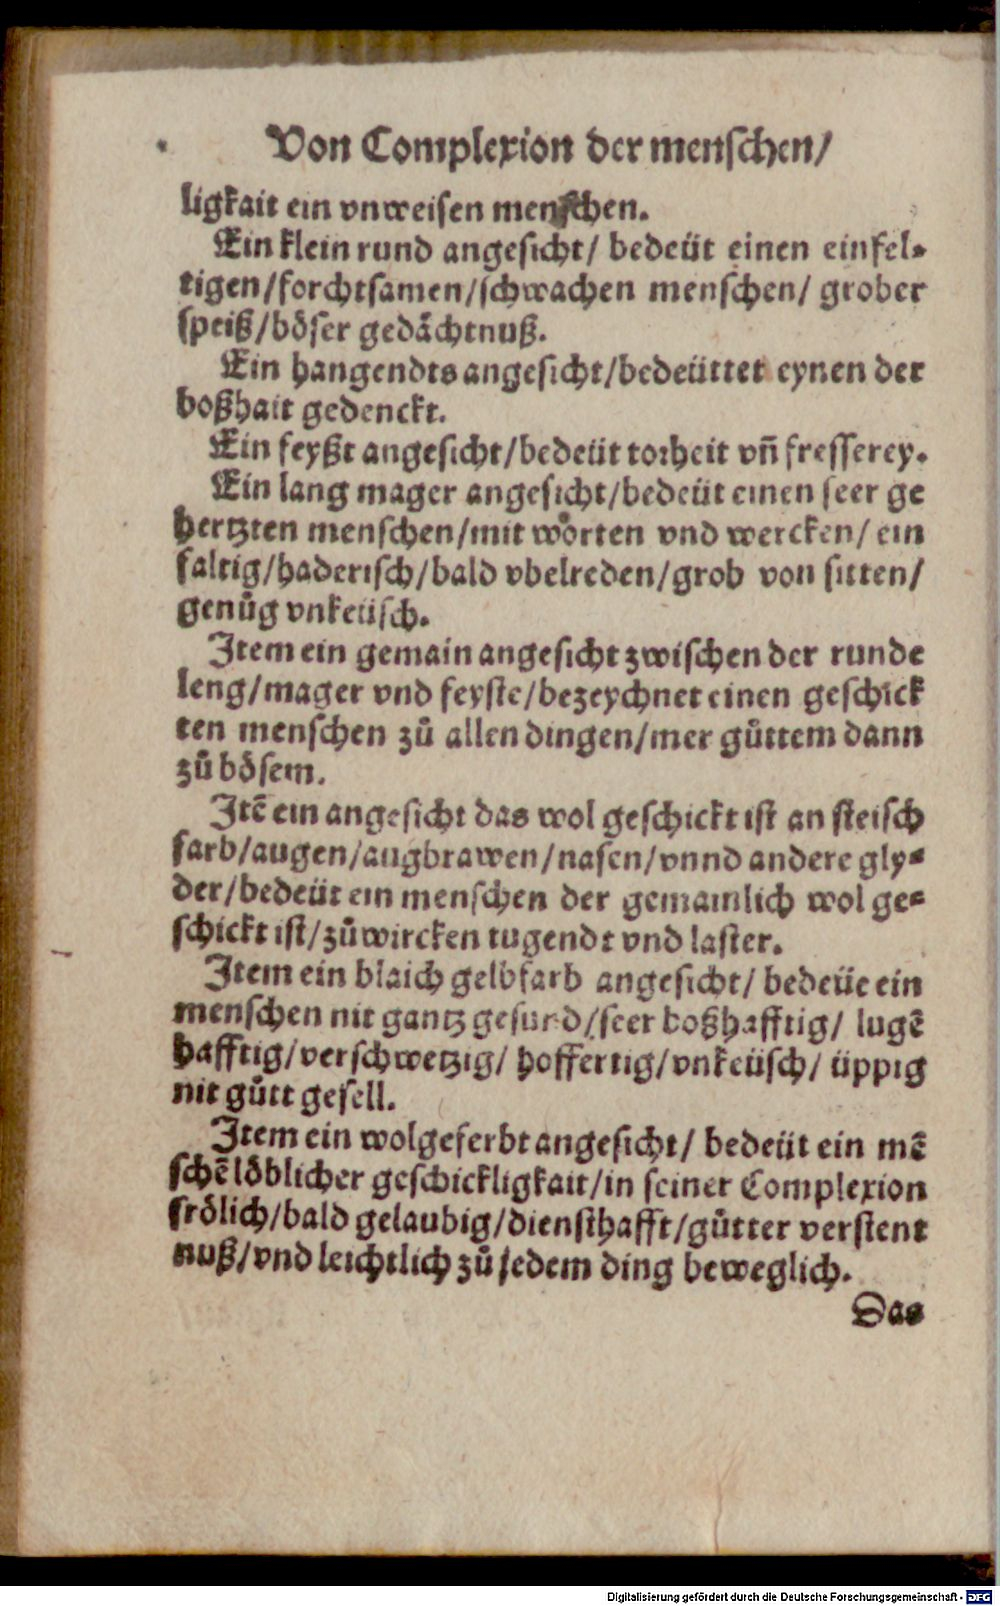 Von Complexion der menschen/
ligkait ein vnweisen menschen.
Ein klein rund angesicht/ bedeüt einen einfel-
tigen/forchtsamen/schwachen menschen/ grober
speiß/böser gedächtnuß.
Ein hangendts angesicht/bedeüttet eynen der
boßhait gedenckt.
Ein feyßt angesicht/bedeüt torheit vñ fresserey.
Ein lang mager angesicht/bedeüt einen seer ge
hertzten menschen/mit worten vnd wercken/ ein
faltig/haderisch/bald vbelreden/grob von sitten/
genůg vnkeüsch.
Item ein gemain angesicht zwischen der runde
leng/mager vnd feyste/bezeychnet einen geschick
ten menschen zů allen dingen/mer gůttem dann
zů bösem.
Itē ein angesicht das wol geschickt ist an fleisch
farb/augen/augbrawen/nasen/vnnd andere gly-
der/bedeüt ein menschen der gemainlich wol ge-
schickt ist/zůwircken tugendt vnd laster.
Item ein blaich gelbfarb angesicht/ bedeüt ein
menschen nit gantz gesund/seer boßhafftig/ lugē
hafftig/verschwetzig/ hoffertig/vnkeüsch/ üppig
nit gůtt gesell.
Item ein wolgeferbt angesicht/ bedeüt ein mē
schē löblicher geschickligkait/in seiner Complexion
frölich/bald gelaubig/diensthafft/gůtter verstent
nuß/vnd leichtlich zů jedem ding beweglich.
Das
Digitalisierung gefördert durch die Deutsche Forschungsgemeinschaft - DFG